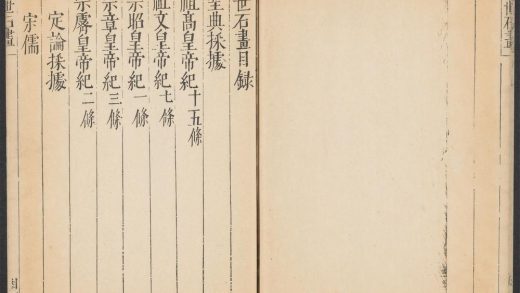 世石畫
世石畫目録
典採據
祖高皇帝紀十五條
祖文皇帝紀七條
宗昭皇帝紀一條
宗章皇帝紀三條
宗睿皇帝紀二條
定論採據
宗儒
世石畫
目